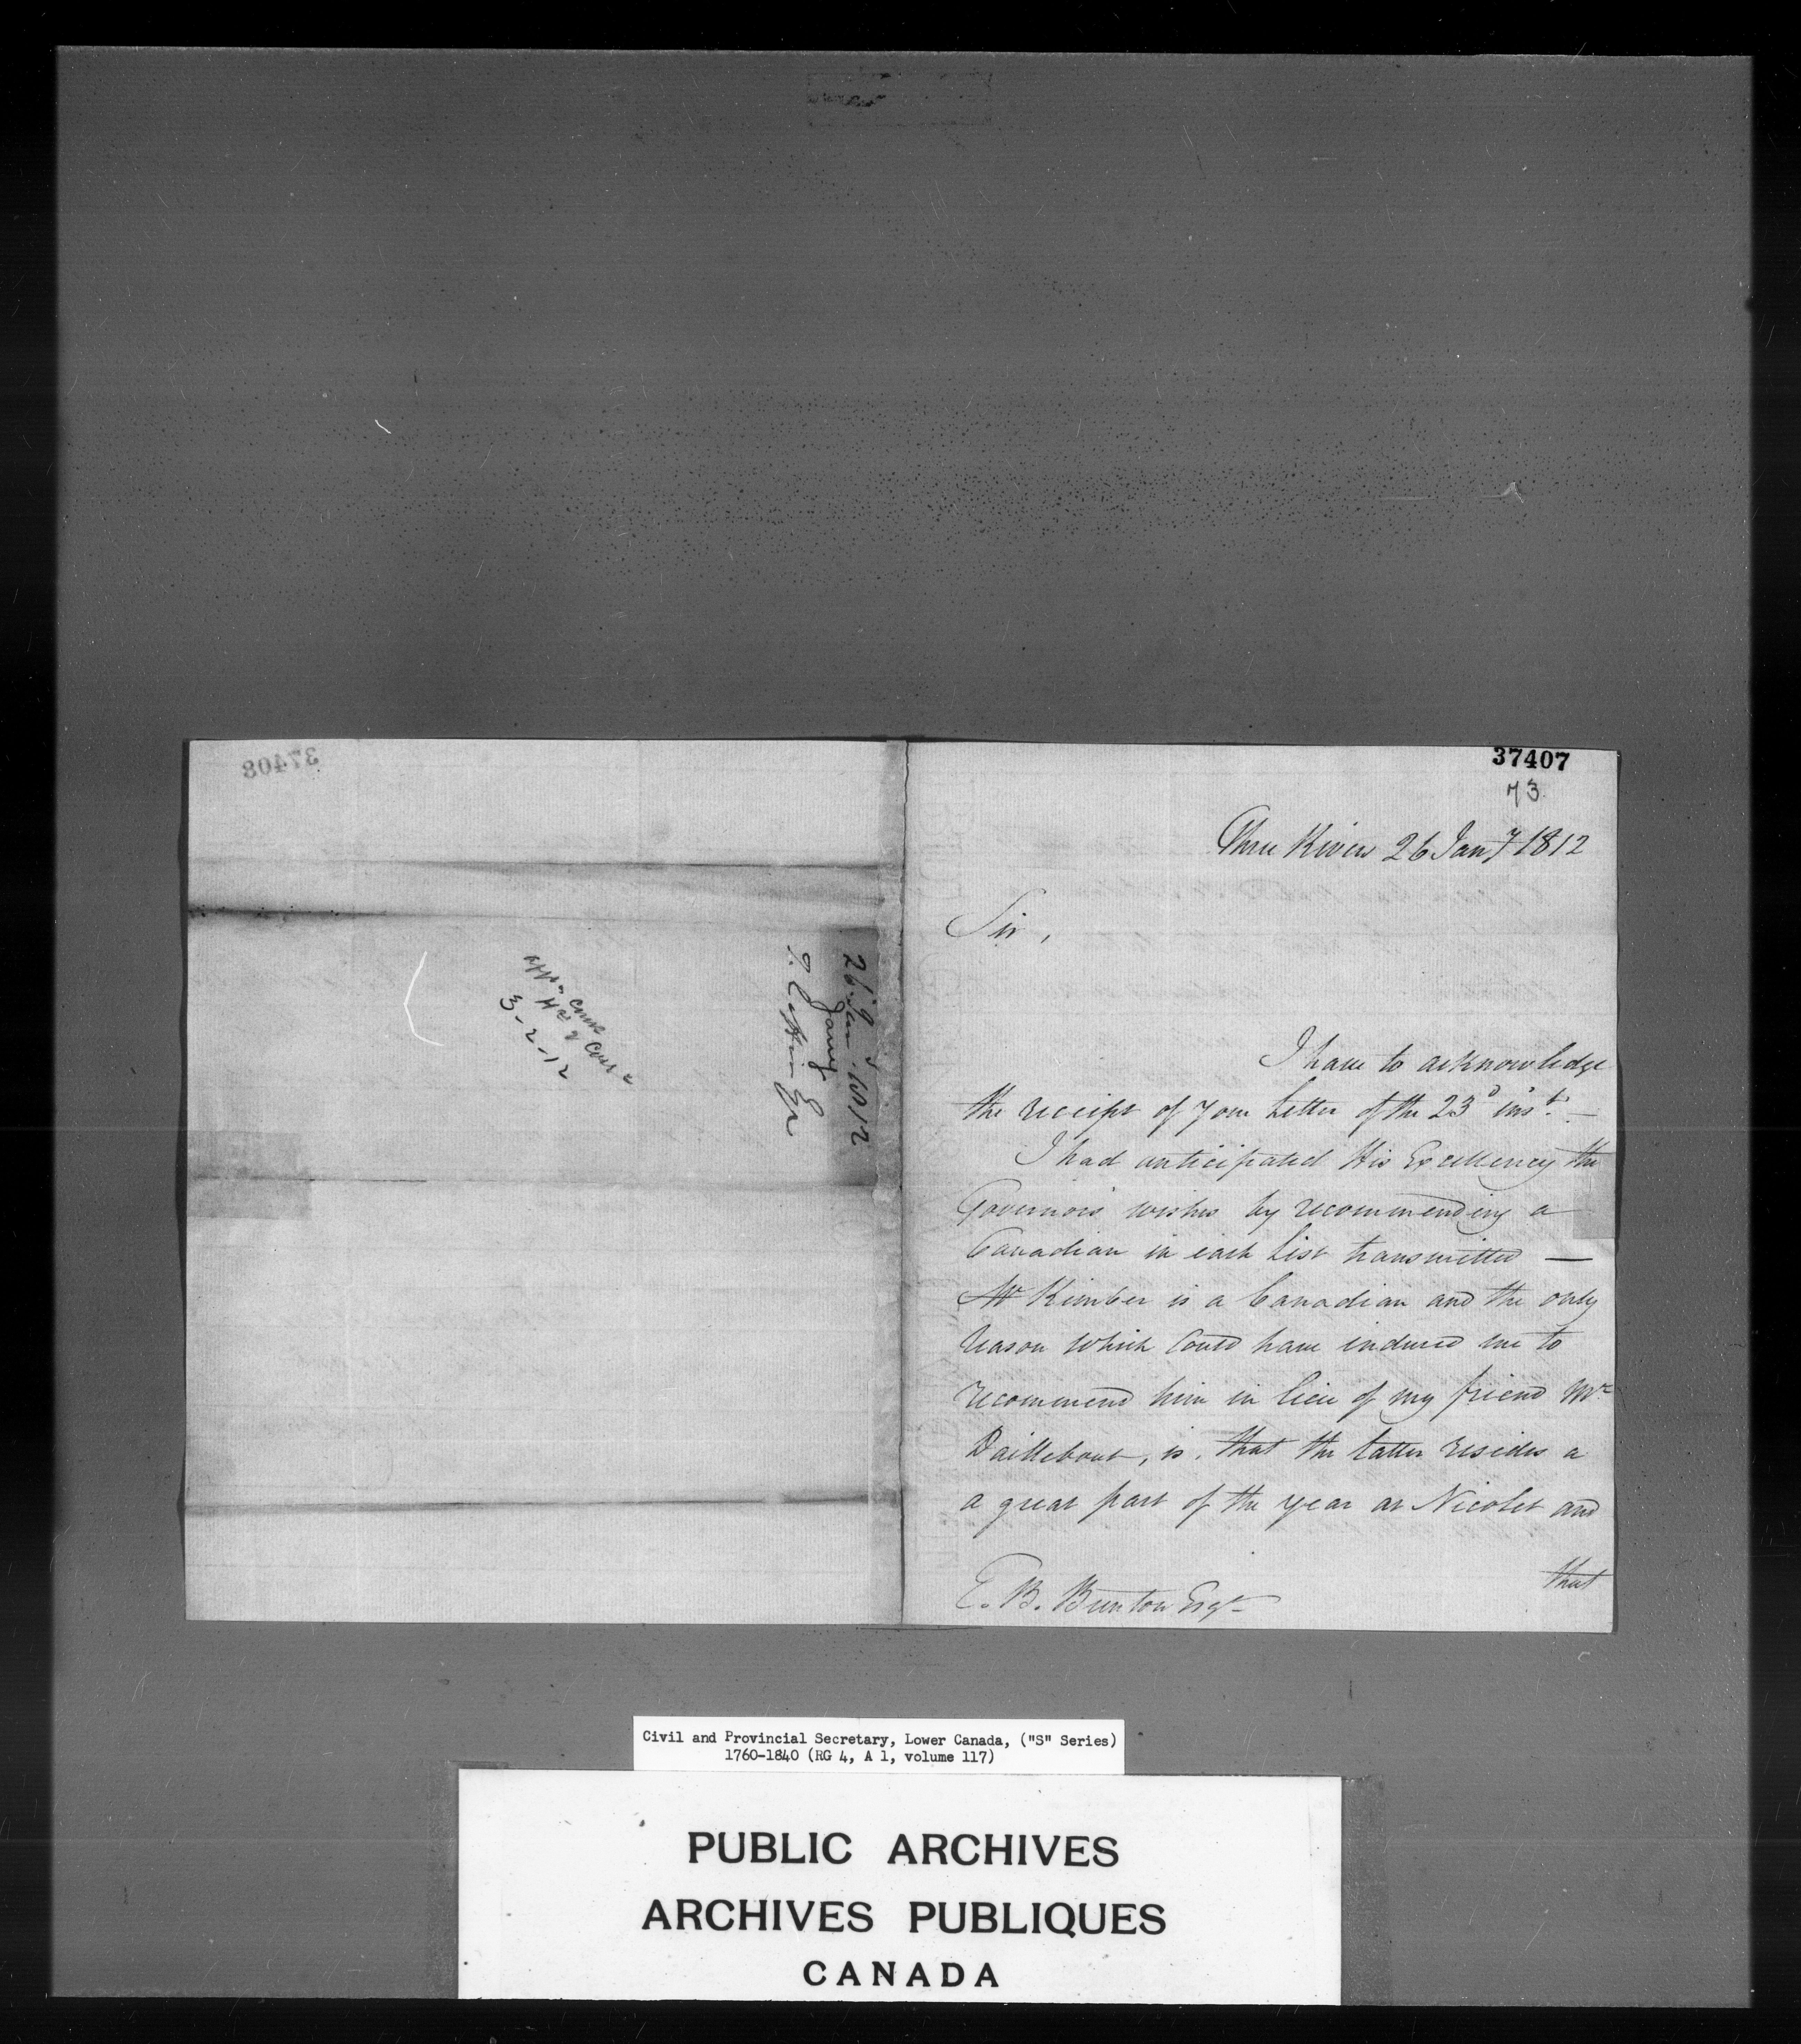 37408
26 Jany 1812
T. Coffin Esqr
3-2-12
37407
73
Three Rivers 26 Jany 1812
Sir,
I have to acknowledge
the receipt of your Letter of the 23d inst. —
I had anticipated His Excellency the
Governors wishes by recommending a
Canadian in each List transmitted —
Mr Kimber is a Canadian and the only
reason which could have induced me to
recommend him in lieu of my friend Mr
Daillebout, is, that the latter resides a
a great part of the year at Nicolet and
that
E. B. Brenton Esqr
Civil and Provincial Secretary, Lower Canada, ("S" Series)
1760-1840 (RG 4, A 1, volume 117)
PUBLIC ARCHIVES
ARCHIVES PUBLIQUES
CANADA